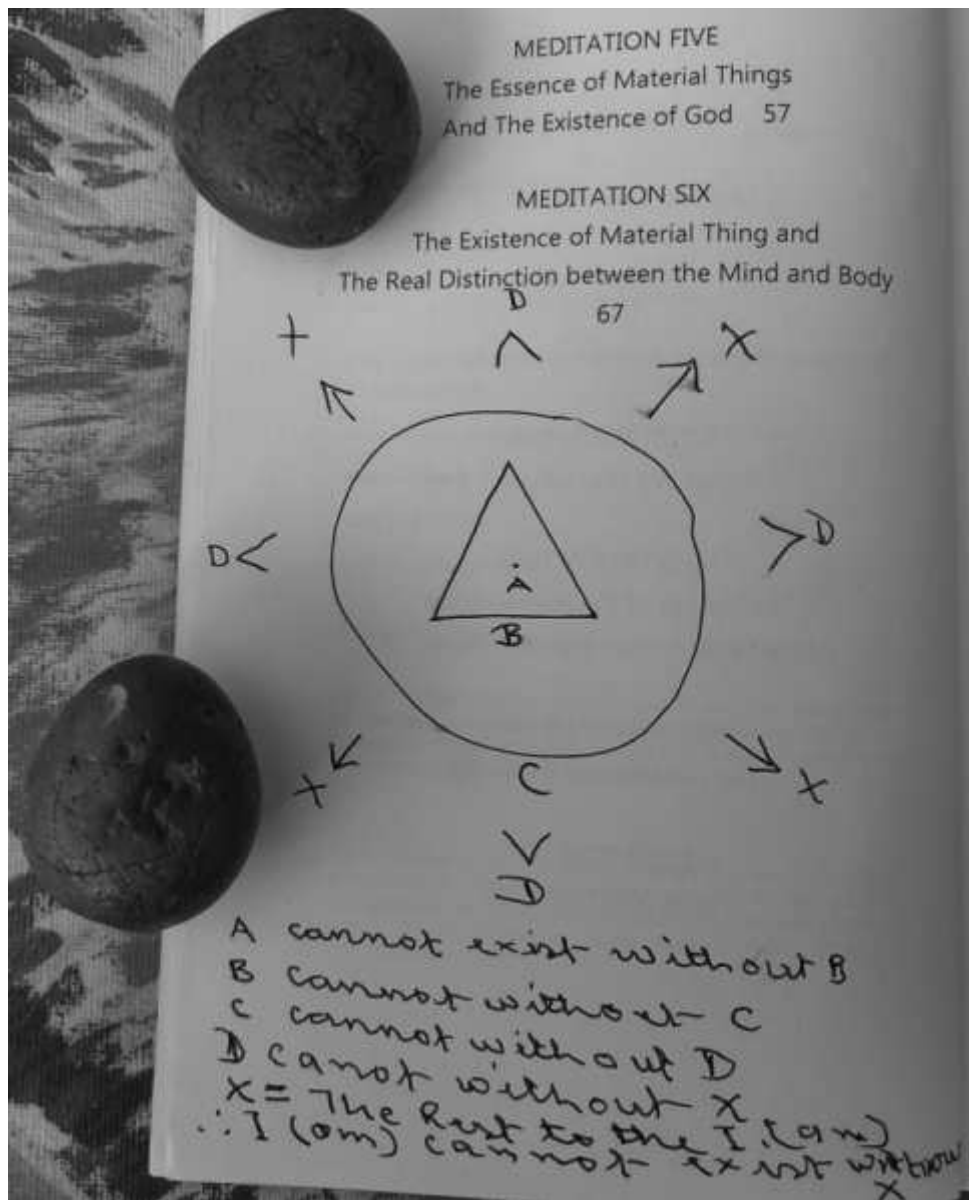 MEDITATION FIVE
The Essence of Material Things
And The Existence of God 57
MEDITATION SIX
The Existence of Material Thing and
The Real Distinction between the Mind and Body
67
D
+ X
D D
A
B
X X
C
D
A cannot exist without B
B cannot without C
C cannot without D
D canot without X
X = The Rest to the I (am)
∴ I (am) cannot exist without
X